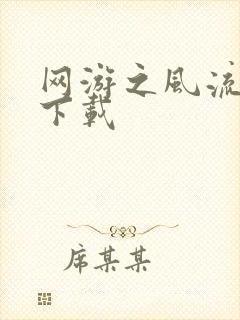 网游之风流
下载
席某某